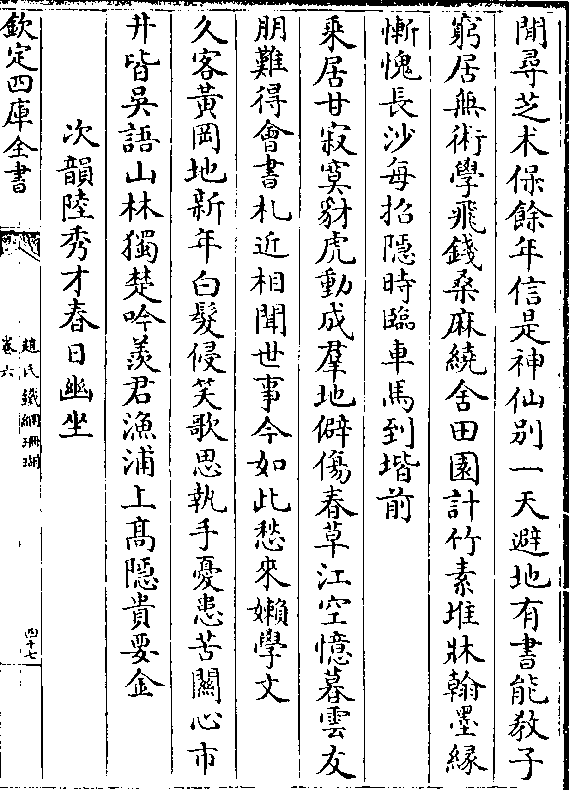 聞尋芝术保餘年信是神仙别一天避地有書能敎子
窮居無術學飛錢桑麻繞舍田園計竹素堆牀翰墨縁
慚愧長沙每招隠時臨車馬到堦前
乘居甘寂寞豺虎動成羣地僻傷春草江空憶暮雲友
朋難得會書札近相聞世事今如此愁來嬾學文
久客黃岡地新年白髮侵笑歌思執手憂患苦關心市
井皆吳語山林獨楚吟羨君漁浦上髙隠貴要金
次韻陸秀才春日幽坐
欽定四庫全書
趙氏鐵網珊瑚
卷六
四十七